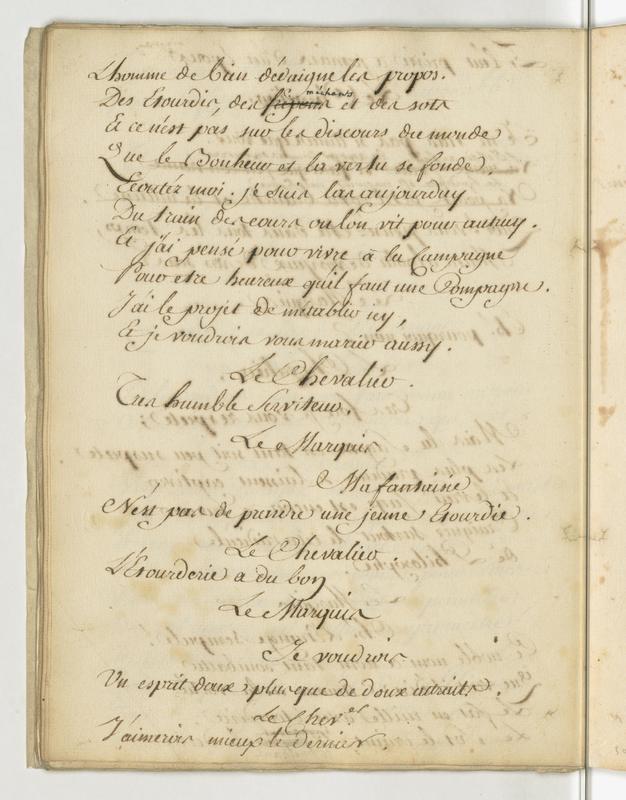 L'homme de bien dédaigne les propos.
Des Etourdis, des méchants et des sots
Et ce n'est pas sur les discours du monde
Que le Bonheur et la vertu se fonde.
Ecoutéz moi. je suis las aujourduy
Du train des cours ou l'on vit pour autruy.
Et j'ai pensé pour vivre à la Campagne
Pour etre heureux qu'il faut une Compagne.
J'ai le projet de m'etablir icy,
Et je voudrois vous marier aussy.
Le Chevalier.
Tres humble Serviteur.
Le Marquis
Ma fantaisie
N'est pas de prendre une jeune Etourdie.
Le Chevalier.
L'Etourderie a du bon
Le Marquis
Je voudrois
Un esprit doux plus que de doux attraits.
Le Chever
J'aimerois mieux le dernier.